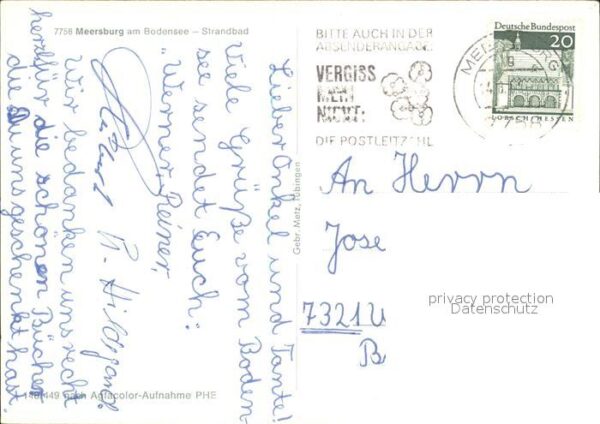 7758 Meersburg am Bodensee – Strandbad
Lieber Onkel und Tante!
Viele Grüße vom Boden-
see sendet Euch:
Werner, Reiner,
R. Hildegard
Wir bedanken uns recht
herzl. für die schönen Bücher
die Du uns geschenkt hast.
149/449 nach Agfacolor-Aufnahme PHE
Gebr. Metz, Tübingen
BITTE AUCH IN DER
ABSENDERANGABE:
VERGISS
MEIN
NICHT:
DIE POSTLEITZAHL
Deutsche Bundespost
20
LORSCH/HESSEN
7758
An Herrn
Jose
7321 U
B
privacy protection
Datenschutz